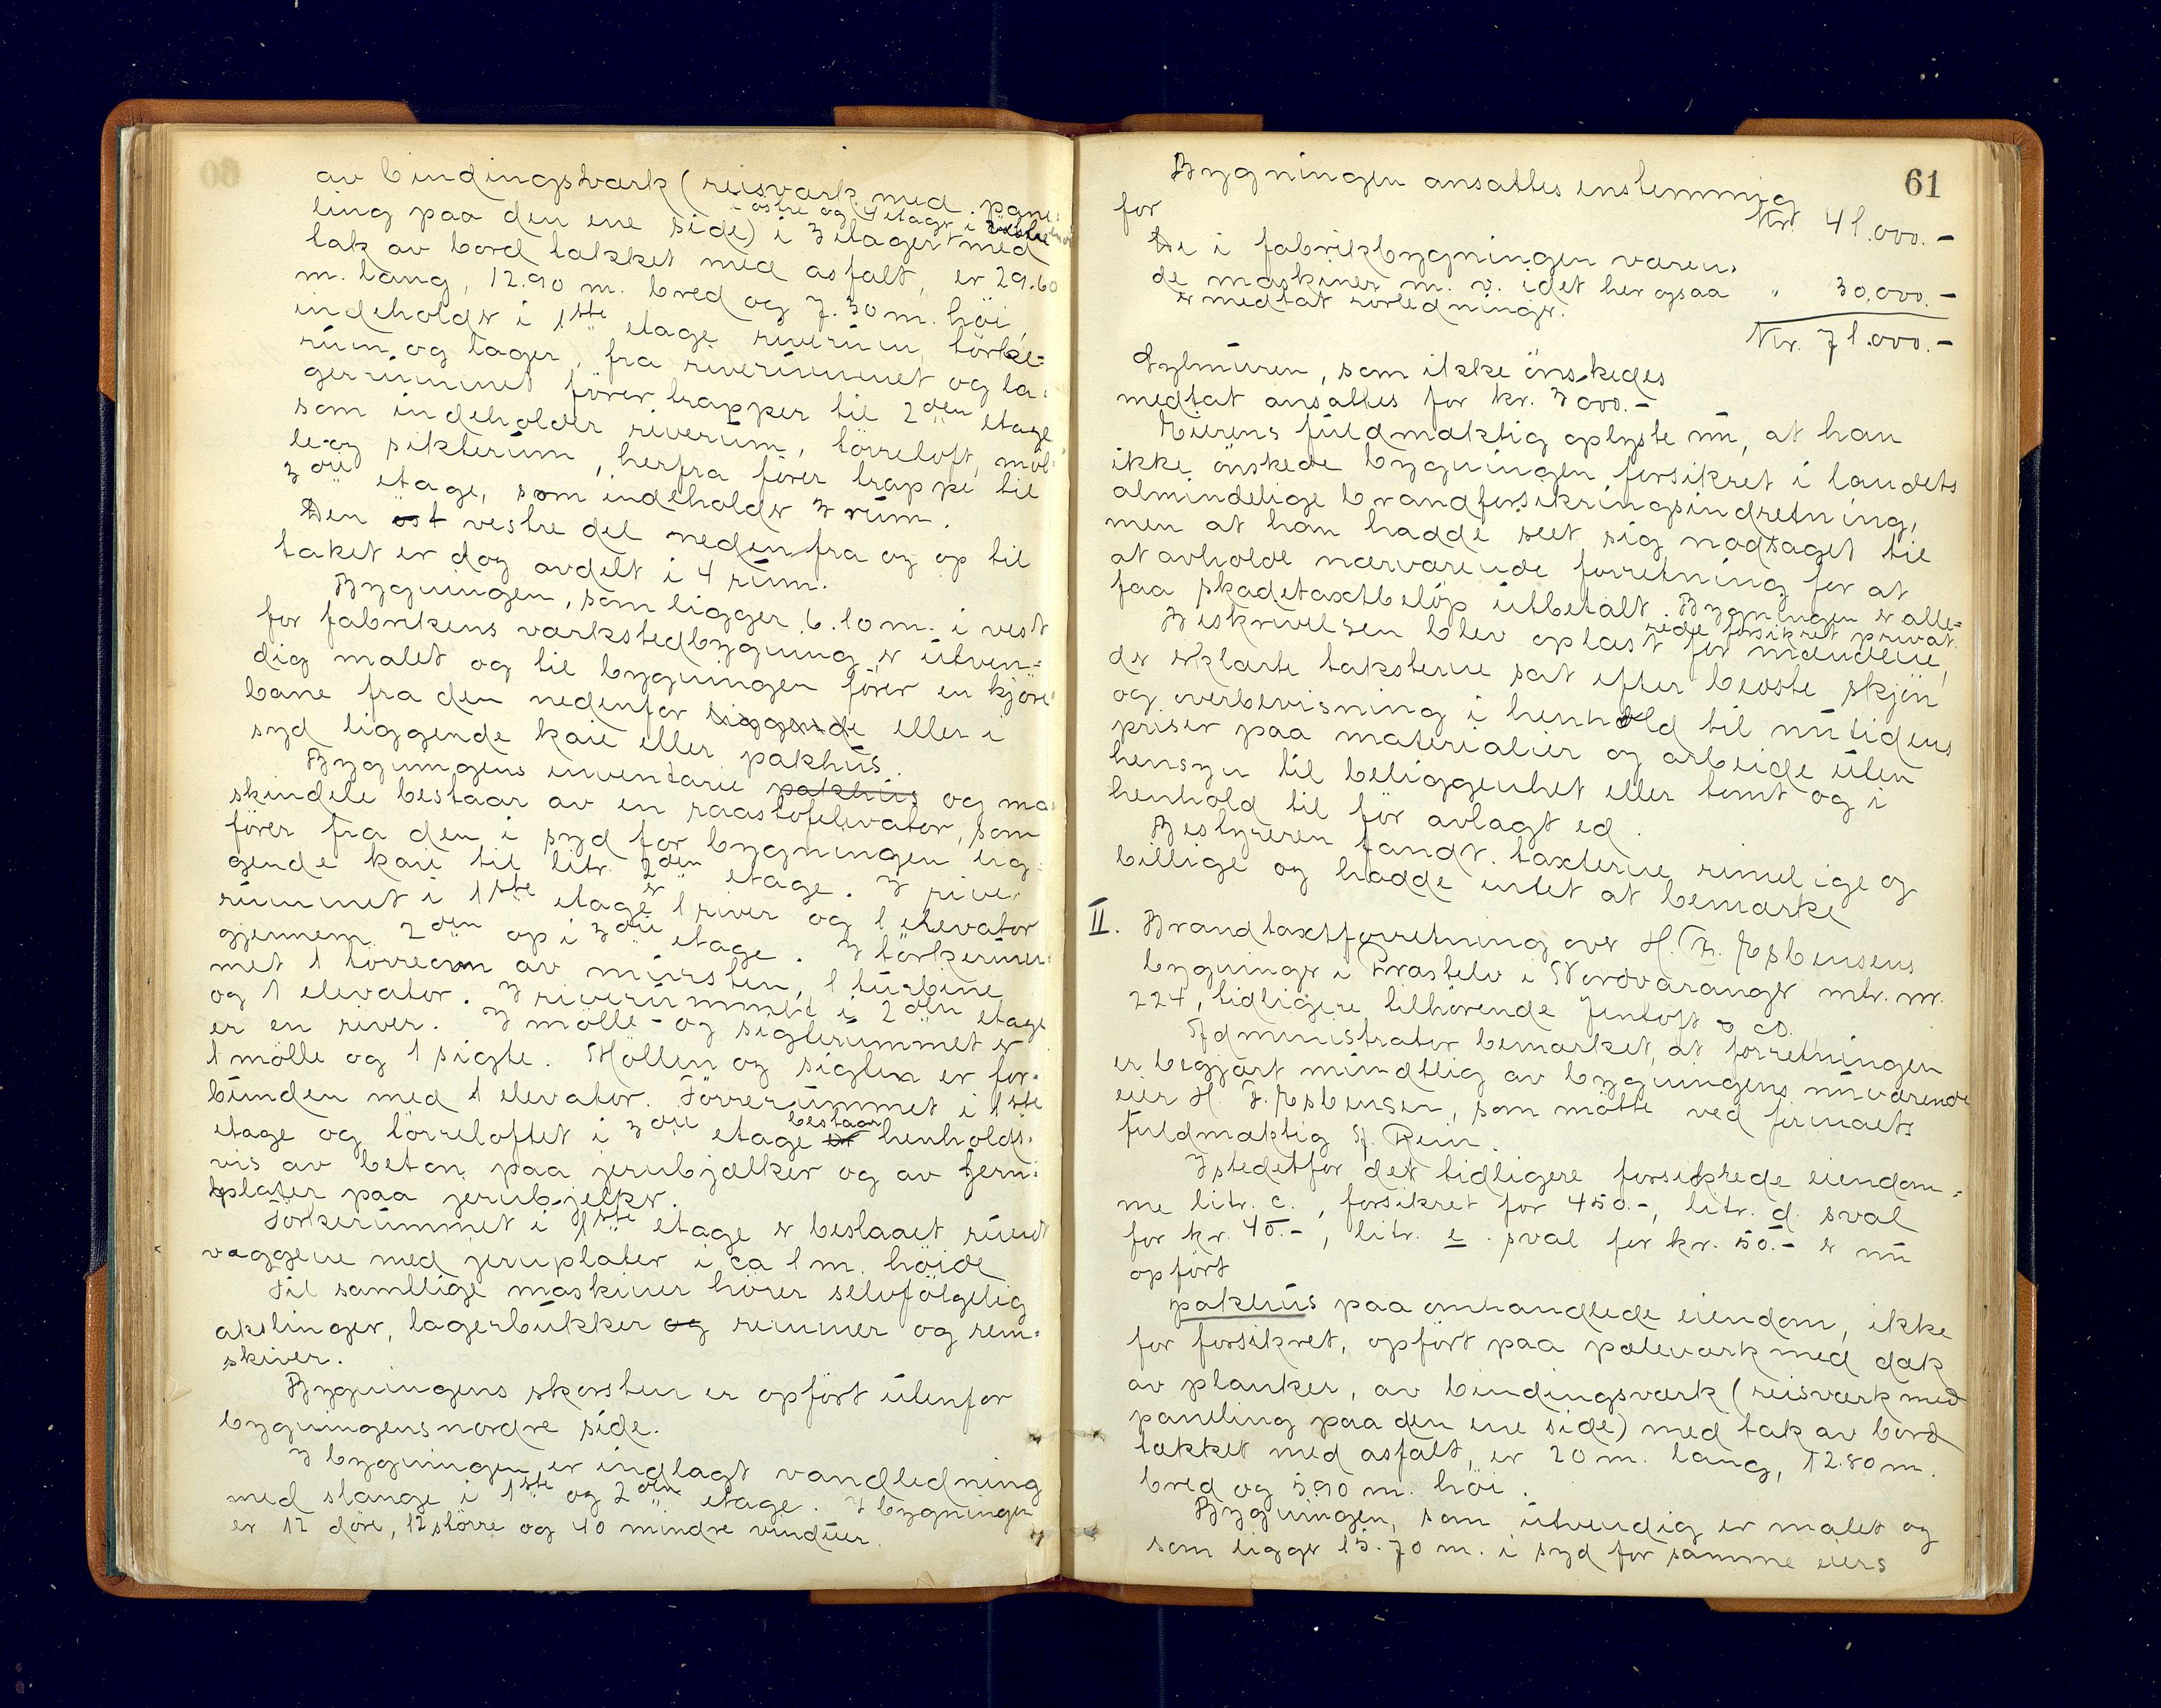 av bindingsværk (reisværk med pane-
- østre og 4 etager i vestre
ling paa den ene side) i 3 etager med
tak av bord tækket med asfalt, er 29.60
m. lang, 12.90 m. bred og 7.30 m. höi,
indeholder i 1ste etage riverum, törke=
rum og lager, fra riverummet og la-
gerrummet förer trapper til 2den etage
som indeholder riverum, törreloft, möl-
le-og sikterum, herfra förer trappe til
3die etage, som indeholder 3 rum.
Den öst vestre del nedenfra og op til
taket er dog avdelt i 4 rum.
Bygningen, som ligger 6.10 m. i vest
for fabrikens værkstedbygning er utven=
dig malet og til bygningen förer en kjöre-
bane fra den nedenfor liggende eller i
syd liggende kaie eller pakhus.
Bygningens inventarie pakhus og ma-
skindele bestaar av en raastofelevator, som
förer fra den i syd for bygningen lig-
gende kaie til litr. 2den etage. I rive-
rummet i 1ste etage er 1 river og 1 elevator
gjennem 2den op i 3die etage. I törkerum-
met 1 törreovn av mursten, 1 turbine
og 1 elevator. I riverummet i 2den etage
er en river. I mölle- og sigterummet er
1 mölle og 1 sigte. Möllen og sigten er for-
bunden med 1 elevator. Törrerummet i 1ste
bestaar
etage og törreloftet i 3die etage er henholds-
vis av beton paa jernbjælker og av jern-
plater paa jernbjelker.
Törkerummet i 1ste etage er beslaaet rundt
væggene med jernplater i ca 1 m. höide
Til samtlige maskiner hörer selvfölgelig
akslinger, lagerbukker og remmer og rem-
skiver.
Bygningens skorsten er opfört utenfor
bygningens nordre side.
I bygningen er indlagt vandledning
med slange i 1ste og 2den etage. I bygningen
er 12 döre, 12 större og 40 mindre vinduer.
61
Bygningen ansattes enstemmig
for Kr. 41.000.-
De i fabrikbygningen væren-
de maskiner m. v. idet her ogsaa " 30.000.-
er medtat rörledninger.
Kr. 71.000.-
Gylmuren, som ikke önskedes
medtat ansattes for kr. 3000.-
Eierens fuldmæktig oplyste nu, at han
ikke önskede bygningen forsikret i landets
almindelige brandforsikringsindretning,
men at han hadde seet sig nödsaget til
at avholde nærværende forretning for at
faa skadetaxtbelöp utbetalt. Bygningen er alle-
rede forsikret privat.
Beskrivelsen blev oplæst for mændene,
der erklærte taksterne sat efter bedste skjön
og overbevisning i henhold til nutidens
priser paa materialier og arbeide uten
hensyn til beliggenhet eller tomt og i
henhold til för avlagt ed.
Bestyreren fandt taxterne rimelige og
billige og hadde intet at bemærke
II. Brandtaxtforretning over H. F. Esbensens
bygninger i Præstelv i Nordvaranger mtr. nr.
224, tidligere tilhörende Jentoft & co.
Administrator bemærket, at forretningen
er begjært mundtlig av bygningens nuværende
eier H. F. Esbensen, som mötte ved firmaets
fuldmæktig A. Rein.
Istedetfor det tidligere forsikrede eiendom-
me litr. c., forsikret for 450.-, litr. d. sval
for kr. 40.-, litr. e. sval for kr. 50.- er nu
opfört
pakhus paa omhandlede eiendom, ikke
för forsikret, opfört paa pæleværk med dæk
av planker, av bindingsværk (reisværk med
paneling paa den ene side) med tak av bord
tækket med asfalt, er 20 m. lang, 12.80 m.
bred og 5.90 m. höi.
Bygningen, som utvendig er malet og
som ligger 15.70 m. i syd for samme eiers